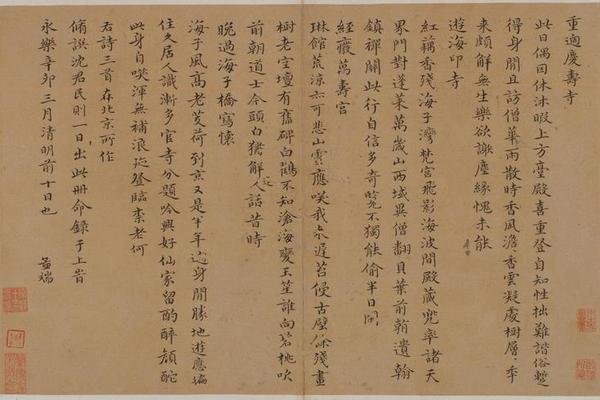 重過慶壽寺
此日偶因休沐暇上方臺殿喜重登自知性拙難諧俗暫
得身閒且訪僧華雨散時香風澹香雲凝處樹層層年
來頗解無生樂欲謝塵緣愧未能
遊海印寺
紅藕香殘海子灣梵宮飛影海波間殿藏兜率諸天
界門對蓬萊萬歲山西域異僧翻貝葉前朝遺翰
鎮禪關此行自信多奇覽不獨能偷半日閒
經廢萬壽宮
琳館荒涼亦可悲山雲應笑我来遲苔侵古壁餘殘畫
樹老空壇有舊碑白鶴不知滄海變玉笙誰向碧桃吹
前朝道士今頭白猶解逢人話昔時
晚過海子橋寫懷
海子風高老芰荷到京又是半年過身閒勝地遊應遍
住久居人識漸多官寺分題吟興好仙家留酌醉顏酡
此身自笑渾無補浪跡登臨柰老何
右詩三首在北京所作
脩譔沈君民則一日出此冊命錄于上峕
永樂辛卯三月清明前十日也
孟端